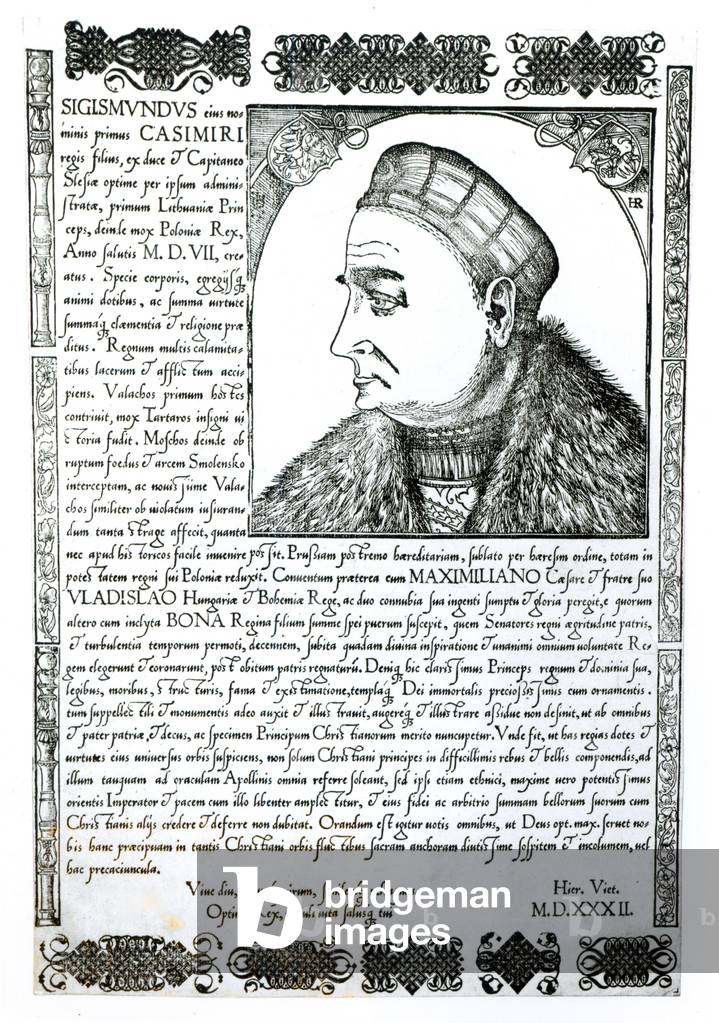 SIGISMVNDVS eius no-
minis primus CASIMIRI
regis filius, ex duce & Capitaneo
Slesiæ optime per ipsum admini-
stratæ, primum Lithuaniæ Prin
ceps, deinde mox Poloniæ Rex,
Anno salutis M. D. VII, cre-
atus. Specie corporis, egregijsq;
animi dotibus, ac summa virtute
summáq; clæmentia & religione præ
ditus. Regnum multis calamita-
tibus lacerum & afflictum acci-
piens. Valachos primum hostes
contriuit, mox Tartaros insigni ui
ctoria fudit. Moschos deinde ob
ruptum foedus & arcem Smolensko
interceptam, ac nouissime Vala-
chos similiter ob uiolatum iusiuran-
dum tanta strage affecit, quanta
nec apud historicos facile inuenire possit. Prussiam postremo hæreditariam, sublato per hæresim ordine, totam in
potestatem regni sui Poloniæ reduxit. Conuentum præterea cum MAXIMILIANO Cæsare & fratre suo
VLADISLAO Hungariæ & Bohemiæ Rege, ac duo connubia sua ingenti sumptu & gloria peregit, e quorum
altero cum inclyta BONA Regina filium summe spei puerum suscepit, quem Senatores regni ægritudine patris,
& turbulentia temporum permoti, decennem, subita quadam diuina inspiratione & unanimi omnium uoluntate Re-
gem elegerunt & coronarunt, post obitum patris regnaturū. Deniq; hic clarissimus Princeps regnum & dominia sua,
legibus, moribus, structuris, fama & existimatione, templaq; Dei immortalis preciosissimis cum ornamentis.
tum suppellectili & monumentis adeo auxit & illustrauit, augereq; & illustrare assidue non desinit, ut ab omnibus
& pater patriæ, & decus, ac specimen Principum Christianorum merito nuncupetur. Vnde fit, ut has regias dotes &
uirtutes eius uniuersus orbis suspiciens, non solum Christiani principes in difficillimis rebus & bellis componendis, ad
illum tanquam ad oraculum Apollinis omnia referre soleant, sed ipsi etiam ethnici, maxime vero potentissimus
orientis Imperator & pacem cum illo libenter amplectitur, & eius fidei ac arbitrio summam bellorum suorum cum
Christianis alijs credere & deferre non dubitat. Orandum est igitur uotis omnibus, ut Deus opt. max. seruet no-
bis hanc præcipuam in tantis Christiani orbis fluctibus sacram anchoram diutissime sospitem & incolumem, uel
hac precaciuncula.
Viue diu,
Rex, uita salusq; tui
Hier. Viet.
M.D.XXXII.
HR
bridgeman
images